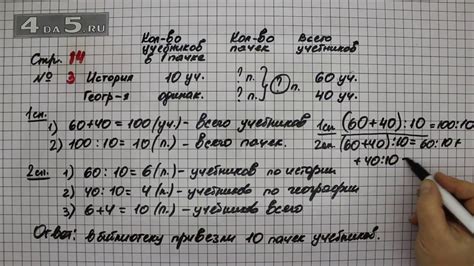 4DA5.RU
Кол-во учебников в 1 пачке
Кол-во пачек
Всего учебников
Стр. 14
№ 3 История 10 уч. ? п. } ? п. 60 уч.
Геогр-я одинак. ? п. 40 уч.
1сп.
1) 60+40=100 (уч.) - всего учебников
2) 100:10=10 (п.) - всего пачек.
1сп. (60+40):10=100:10
2сп. (60+40):10=60:10+
+40:10
2сп.
1) 60:10=6 (п.) - учебников по истории
2) 40:10=4 (п.) - учебников по географии
3) 6+4=10 (п.) - учебников всего
Ответ: в библиотеку привезли 10 пачек учебников.